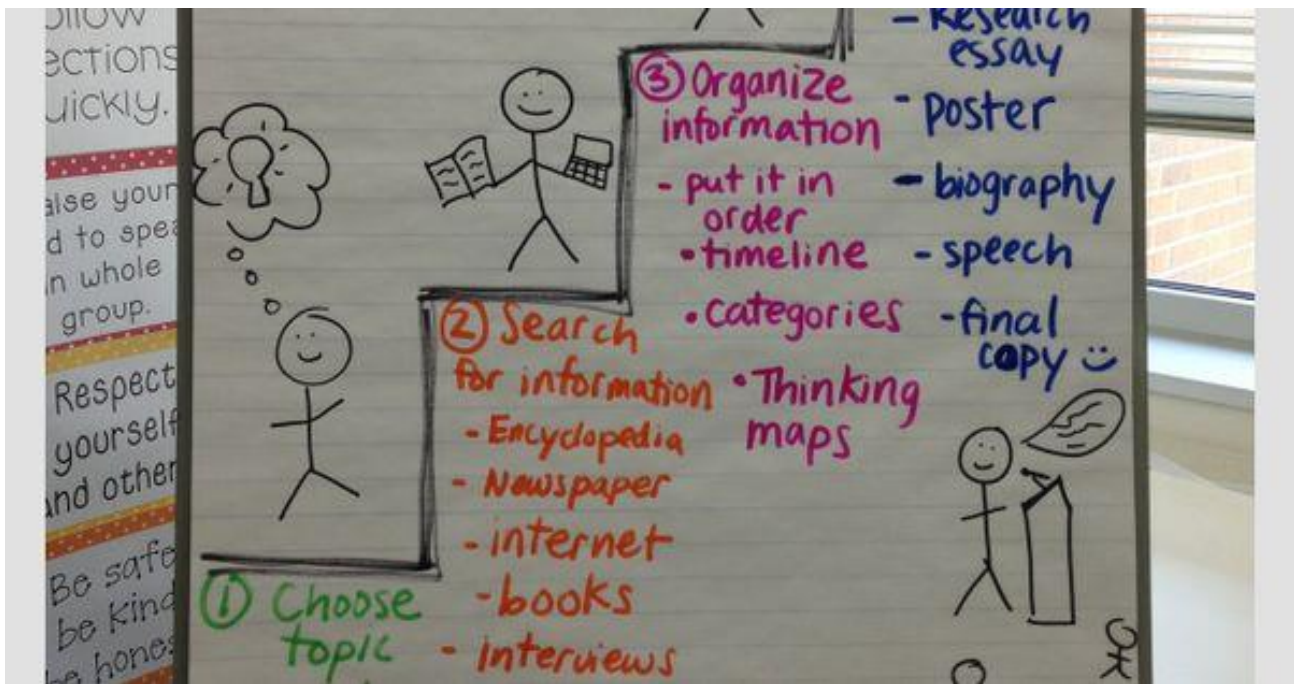 ections
uickly.
your
d to
n whole
group.
Respect
yourself
and other
Be safe
be kind
① Choose
topic
② Search
for information
- Encyclopedia
- Newspaper
- internet
- books
- interviews
③ Organize
information
- put it in
order
• timeline
• categories
• Thinking
maps
- Research
essay
- poster
- biography
- speech
- final
copy